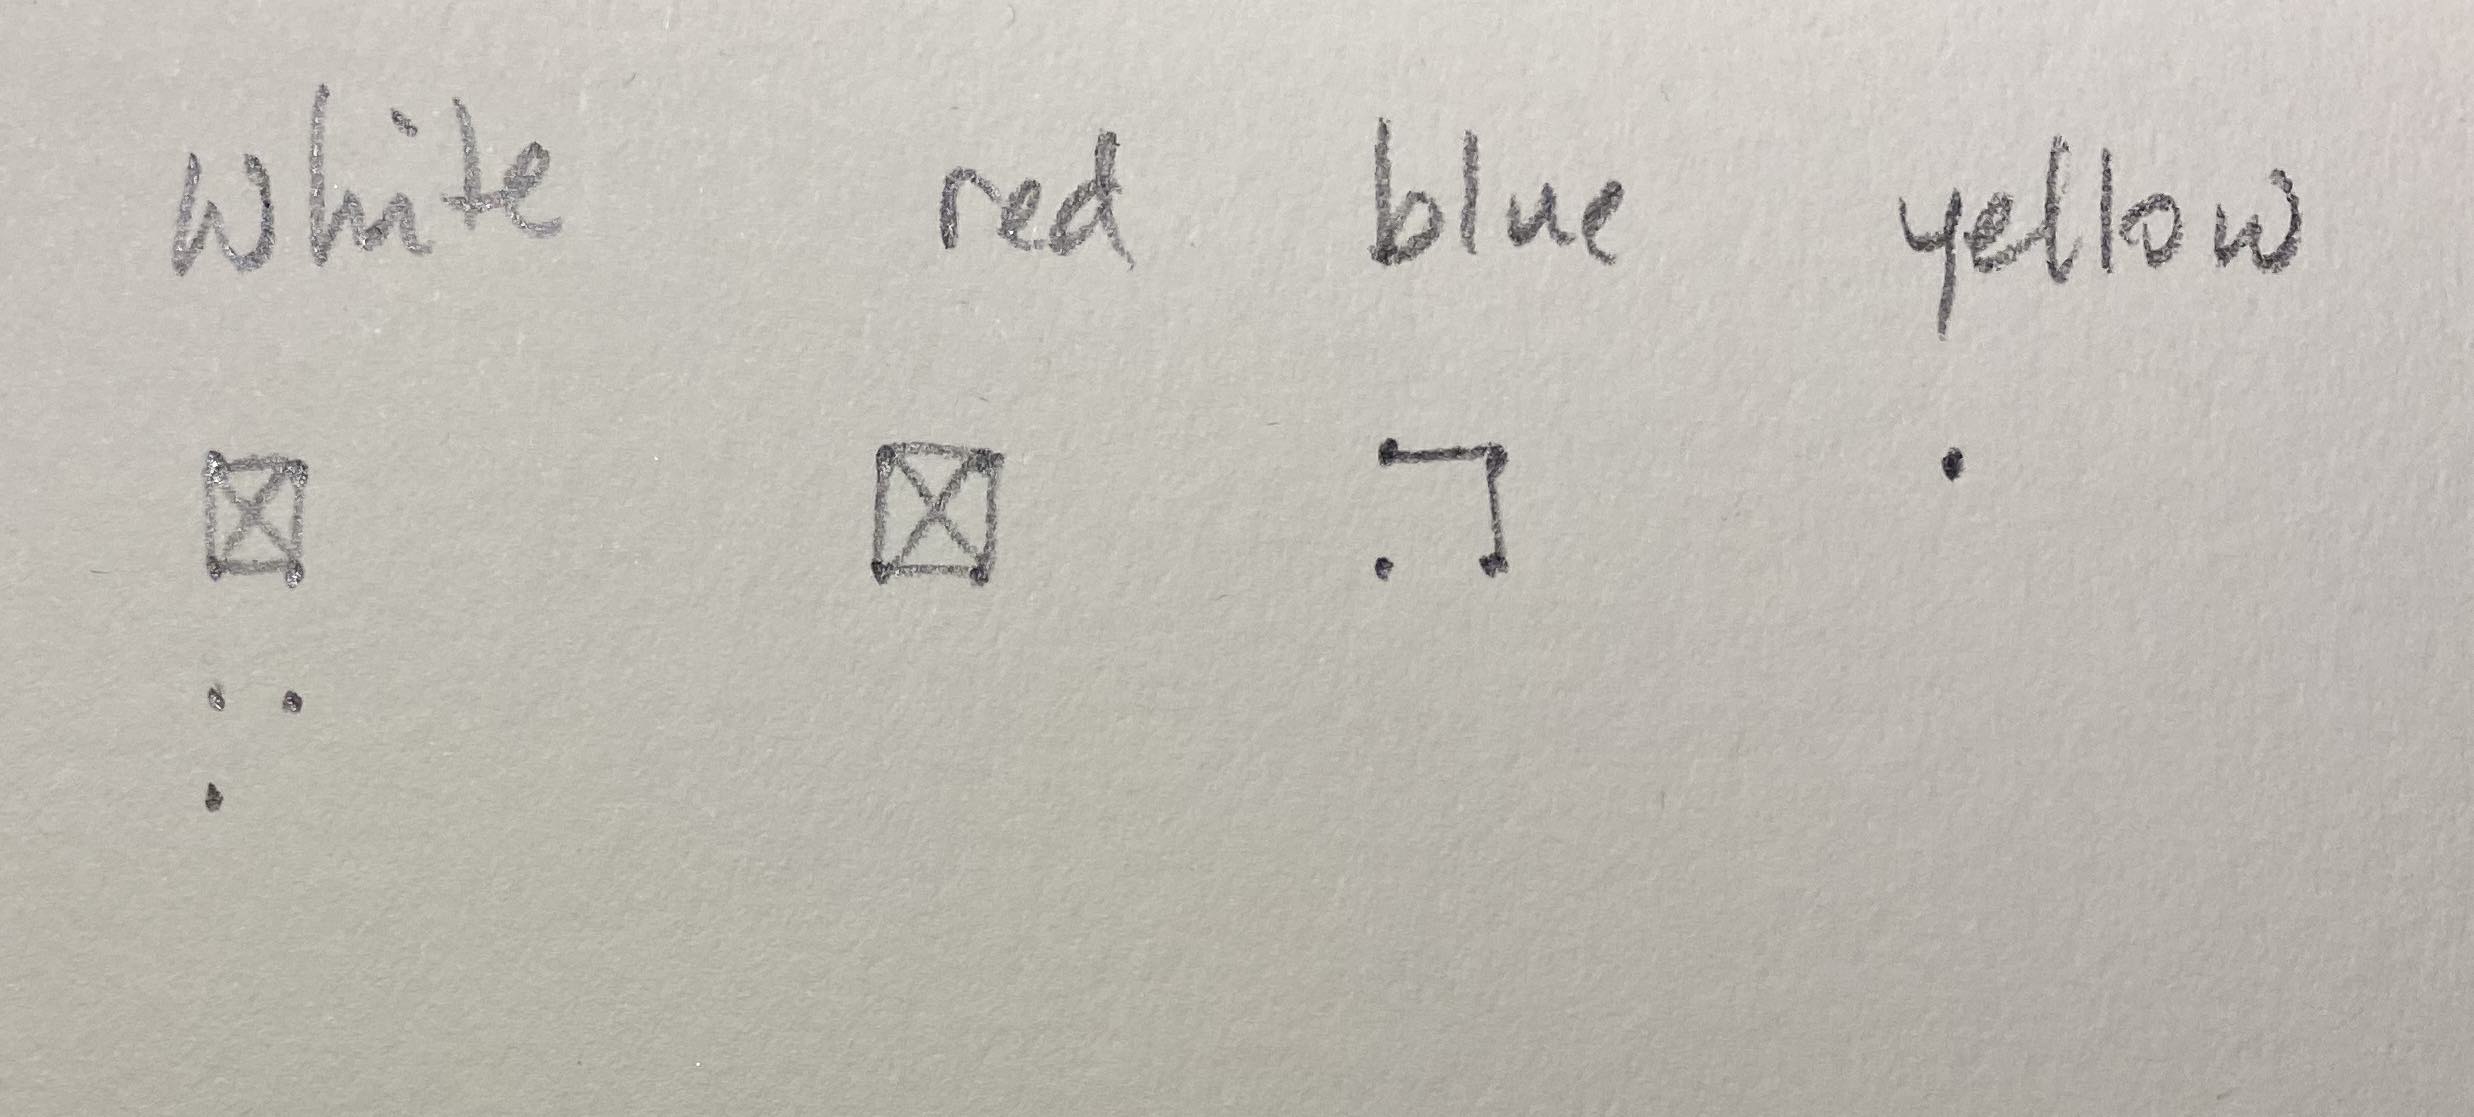 white red blue yellow